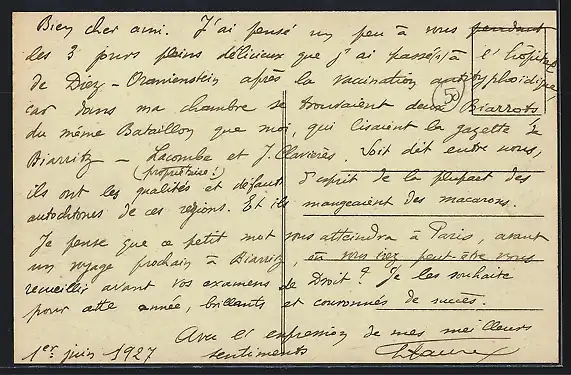 Bien cher ami. J'ai pensé un peu à vous pendant
les 3 jours pleins délicieux que j'ai passés à l'hôpital
de Diez-Oranienstein après la vaccination antityphoïdique,
car dans ma chambre se trouvaient deux Biarrots
50
du même Bataillon que moi, qui lisaient la gazette de
Biarritz - Lacombe et J. Clavières. Soit dit entre nous,
(propriétaire!)
ils ont les qualités et défauts d'esprit de la plupart des
autochtones de ces régions. Et ils mangeaient des macarons.
Je pense que ce petit mot vous atteindra à Paris, avant
un voyage prochain à Biarritz, où vous irez peut-être vous
recueillir avant vos examens de Droit? Je les souhaite
pour cette année, brillants et couronnés de succès.
Avec l'expression de mes meilleurs
1er juin 1927 sentiments